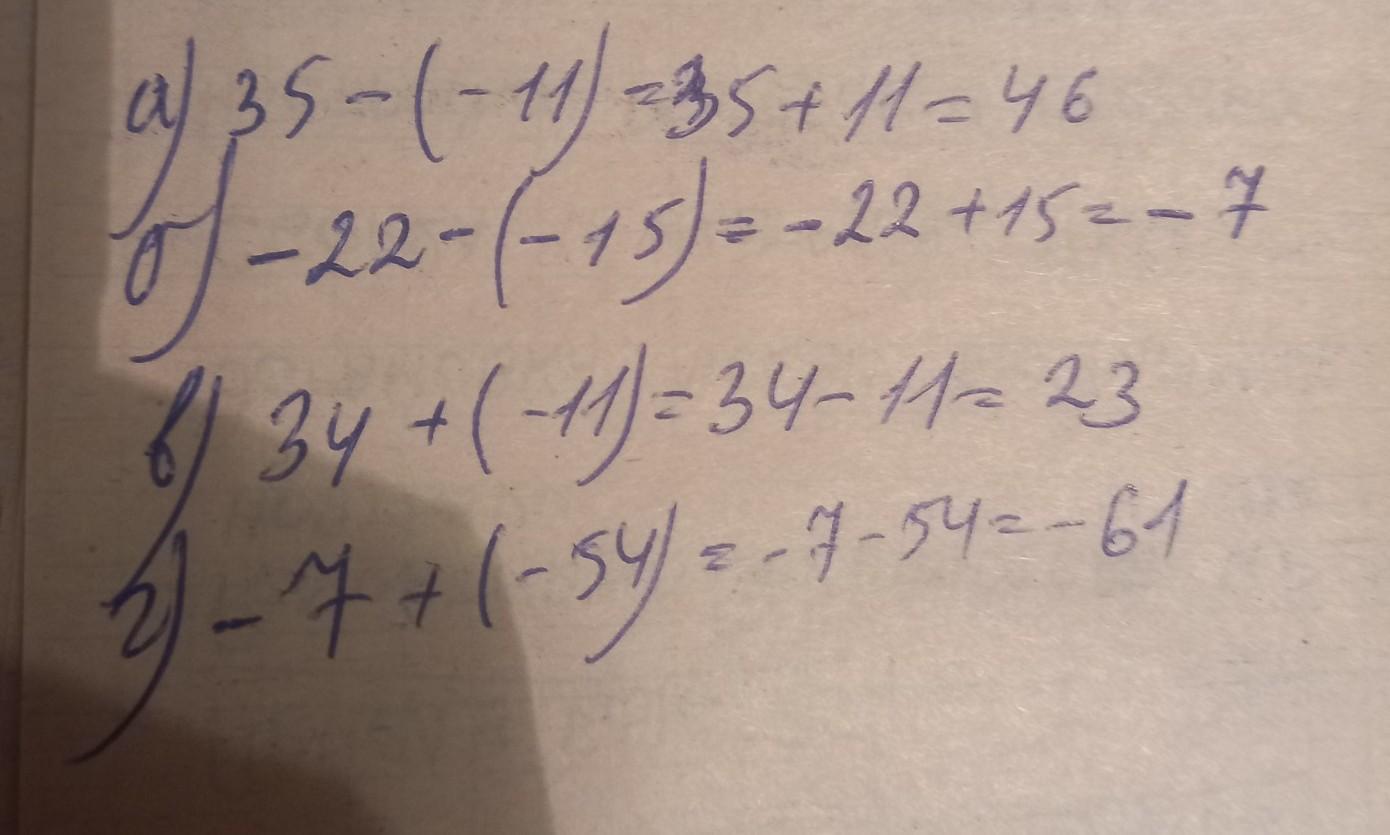 а) 35 - (-11) = 35 + 11 = 46
б) -22 - (-15) = -22 + 15 = -7
в) 34 + (-11) = 34 - 11 = 23
г) -7 + (-54) = -7 - 54 = -61